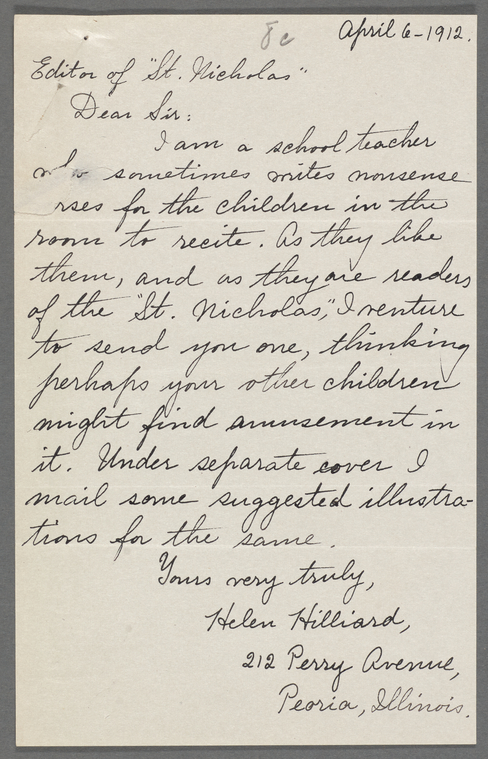 8c
April 6-1912.
Editor of "St. Nicholas"
Dear Sir:
I am a school teacher
who sometimes writes nonsense
rses for the children in the
room to recite. As they like
them, and as they are readers
of the "St. Nicholas," I venture
to send you one, thinking
perhaps your other children
might find amusement in
it. Under separate cover I
mail some suggested illustra-
tions for the same.
Yours very truly,
Helen Hilliard,
212 Perry Avenue,
Peoria, Illinois.